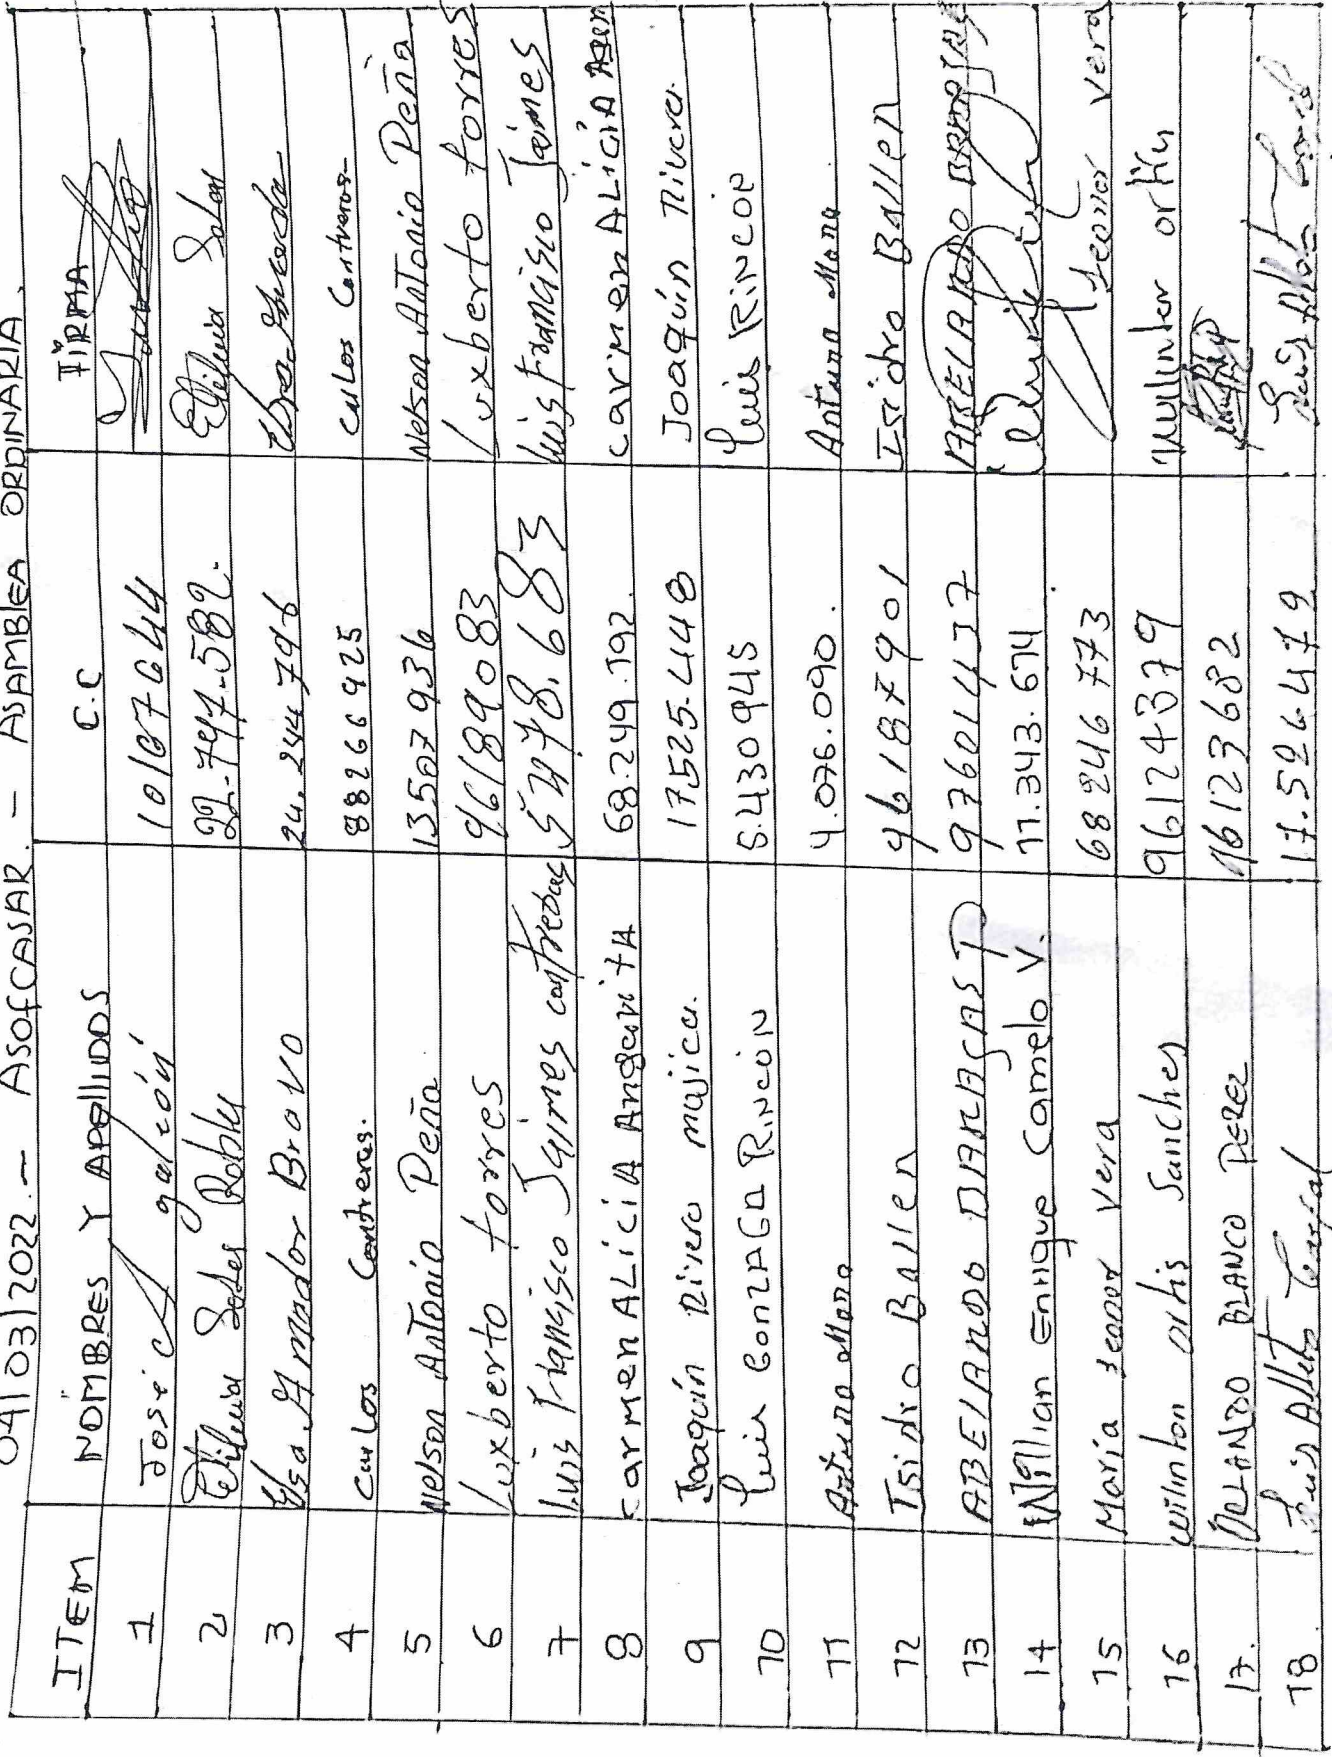 04/03/2022 - ASOFCASAR. - ASAMBLEA ORDINARIA.
ITEM NOMBRES Y APELLIDOS C.C FIRMA
1 José A galión 10167644
2 Etilvia Sales Robles 22.747.582. Etilvia Sales
3 Ysa Amador Bravo 24.244.796
4 Carlos Contreras. 88266925 Carlos Contreras.
5 Nelson Antonio Peña 13507936 Nelson Antonio Peña
6 Luxberto torres 96189083 Luxberto torres
7 Luis Francisco Jaimes contreras 5478.683 Luis Francisco Jaimes
8 carmen ALiciA AngaritA 68.249.192. carmen ALiciA
9 Joaquín Rivera mojica. 17525.448 Joaquín Rivera.
10 Luis GONZAGA RINCÓN 5.430945 Luis RINCON
11 Arturo Mora 4.076.090. Arturo Mora
12 Isidro Ballen 96187901 Isidro Ballen
13 ABELARDO BARAJAS P 97601437 ABELARDO BARAJAS
14 Willian Enrique Camelo V. 11.343.674
15 María Leonor Vera 68246773 Leonor Vera
16 wilinton ortis Sanches 96124379 Wilinton ortis
17. ORLANDO BLANCO PEREZ 96123682
18 Luis Alberto 17.526.479 Luis Alberto